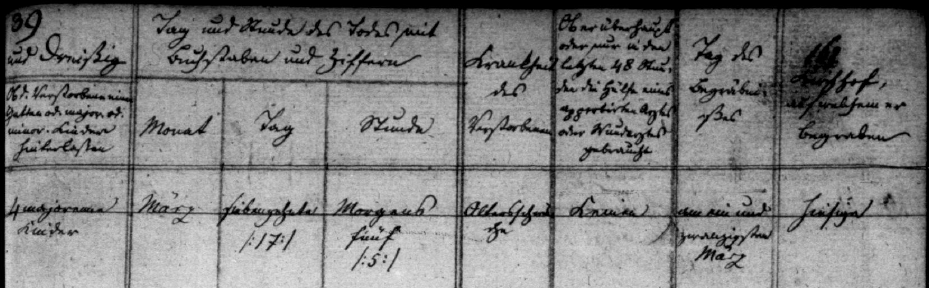 39
und Dreißig
Tag und Stunde des Todes mit
Buchstaben und Ziffern
Krankheit
des
Verstorbenen
Ob er überhaupt
oder nur in den
letzten 48 Stun-
den die Hülfe eines
approbirten Arztes
oder Wundarztes
gebraucht
Tag des
Begräbni-
ßes
Kirchhof,
auf welchem er
begraben
Ob d. Verstorbene einen
Gatten od. major. od.
minor. Kinder
hinterlassen
Monat
Tag
Stunde
4 majorenne
Kinder
März
siebenzehnte
/:17:/
Morgens
fünf
/:5:/
Altersschwä-
che
Keinen
am ein und
zwanzigsten
März
hiesige